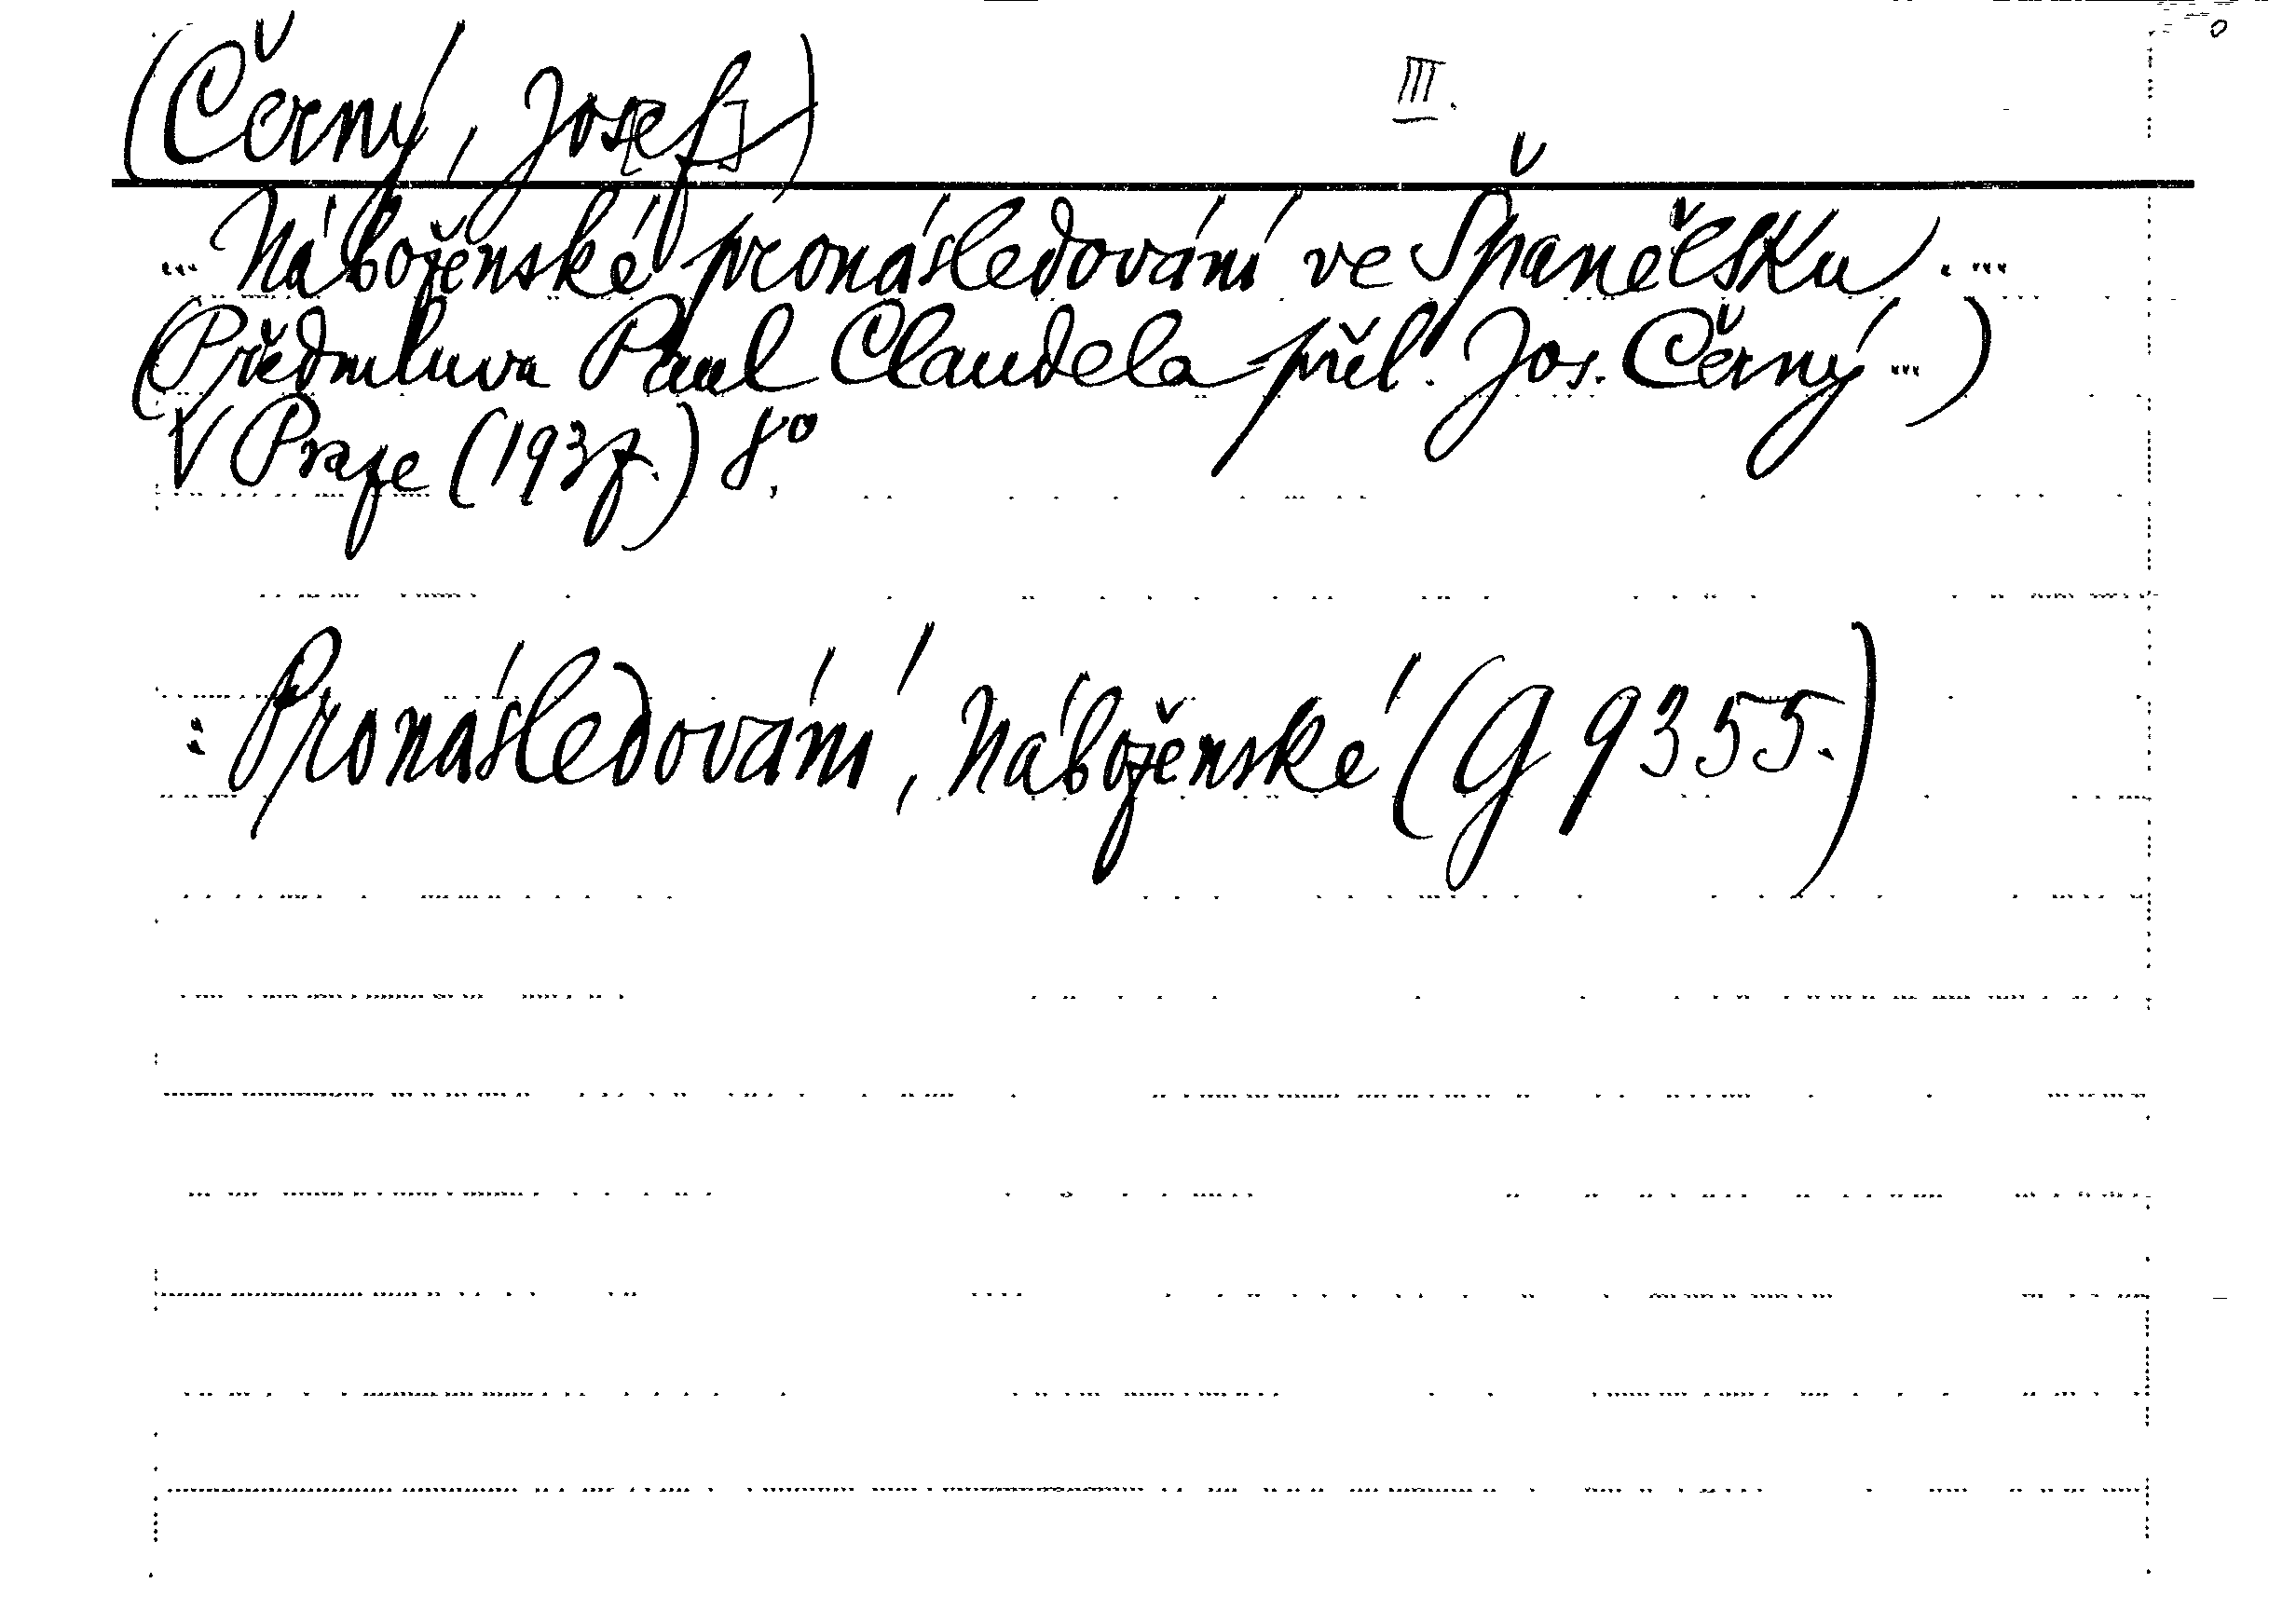 (Černý, Jos[ef]) III.
... Náboženské pronásledování ve Španělsku. ...
(Předmluva Paul Claudela přel. Jos. Černý ...)
V Praze (1937.) 8°.
: Pronásledování, Náboženské (G 9355.)